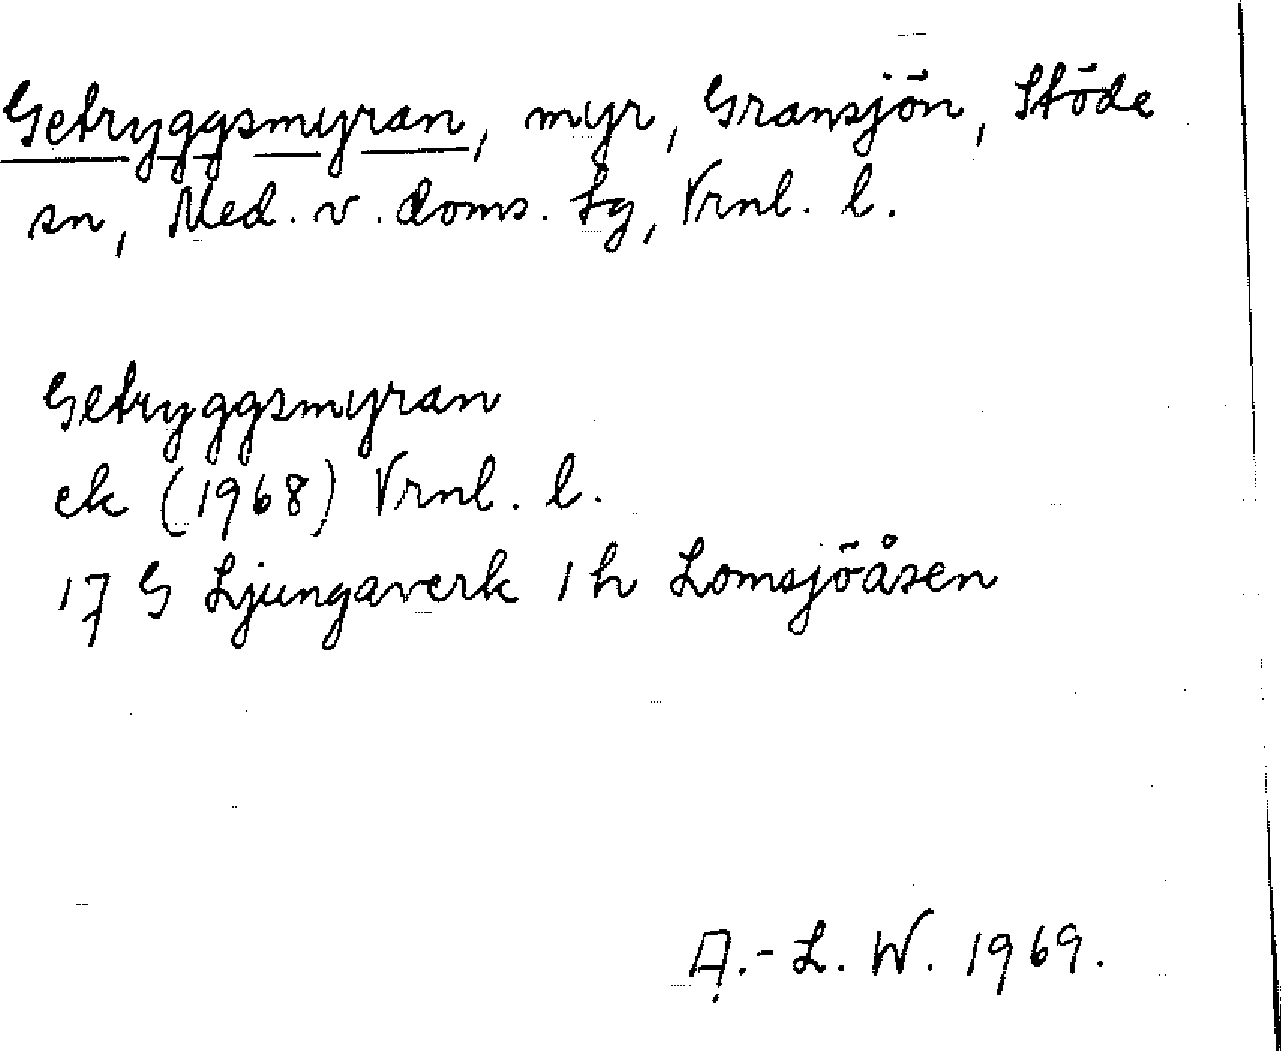 Getryggsmyran, myr, Gransjön, Stöde
sn, Med. v. doms. tg, Vrnl. l.
Getryggsmyran
ek (1968) Vrnl. l.
17 G Ljungaverk 1 h Lomsjöåsen
A.-L. W. 1969.